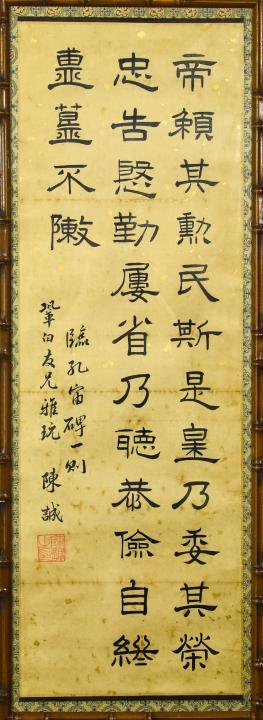 帝賴其勳民斯是皇乃委其榮
忠告慇勤屢省乃聽恭儉自終
𥂖簋不敶
臨孔宙碑一則
鞏伯友兄雅玩 陳誠